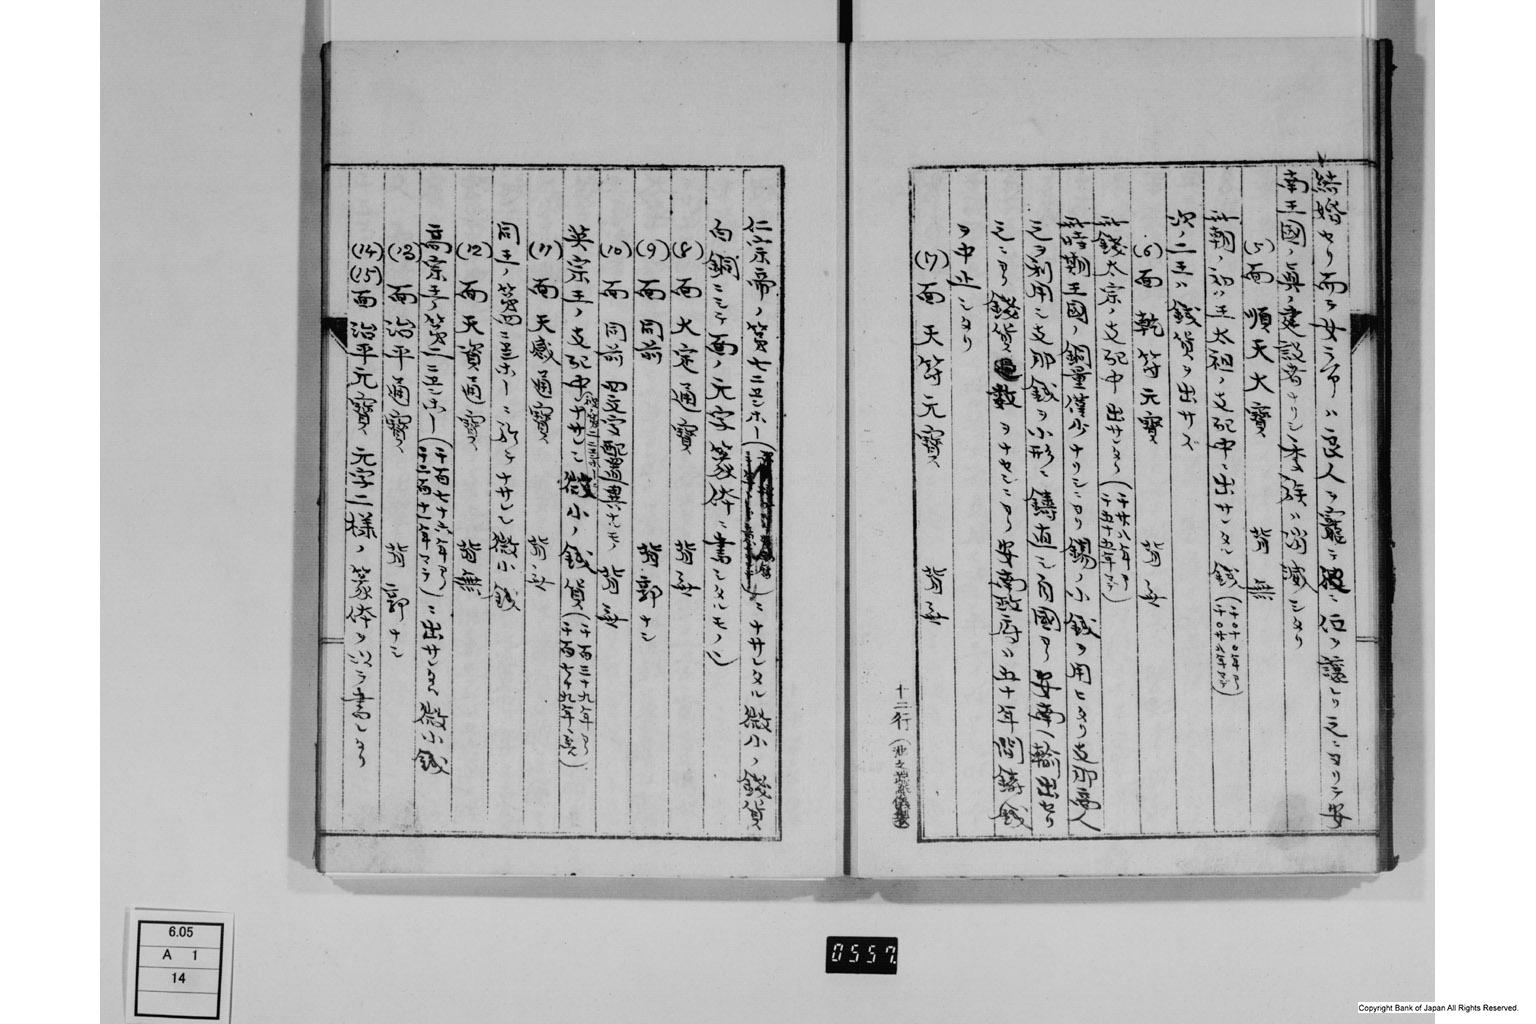 結婚セリ而シテ女ラ帝ハ良人ヲ寵シ位ヲ譲レリ之ニヨリテ安
南王國ノ眞ノ建設者ナリシ李族ハ滅シタリ
(5)面 順天大寶 背 無
此朝ノ初王太祖ノ支配中ニ出サレタル錢
次ノ二王ハ錢貨ヲ出サズ
(6)面 乾符元寶 背 無
此錢太宗ノ支配中出サレタリ
此時期王國ノ銅量僅少ナリシニヨリ錫ノ小錢ヲ用ヒタリ支那商人
之ヲ利用シ支那錢ヲ小形ニ鑄直シ自國ヨリ安南ヘ輸出セリ
之ニヨリ錢貨 數 ヲナセシニヨリ安南政府ハ五十年間鑄錢
ヲ中止シタリ
(7)面 天符元寶 背 無
十二行
仁宗帝ノ第七ニエンホーニナサレタル微小ノ錢貨
白銅ニシテ面ノ元字篆体ニ書シタルモノ
(8)面 大定通寶 背 無
(9)面 同前 背 郭ナシ
(10)面 同前 面文字配置異ナルモノ 背 無
英宗王ノ支配中ナサレシ微小ノ錢貨(千百三十九年ヨリ
千百七十九年ニ至ル)
(11)面 天感通寶 背 無
同王ノ第四ニエンホーニ於テナサレシ微小錢
(12)面 天資通寶 背 無
高宗王ノ第二ニエンホー(千百七十六年ヨリ
千二百十一年マテ)ニ出サレタル微小錢
(13)面 治平通寶 背 郭ナシ
(14)(15)面 治平元寶 元字二様ノ篆体ヲ以テ書シタリ
0557.
6.05
A 1
14
Copyright Bank of Japan All Rights Reserved.